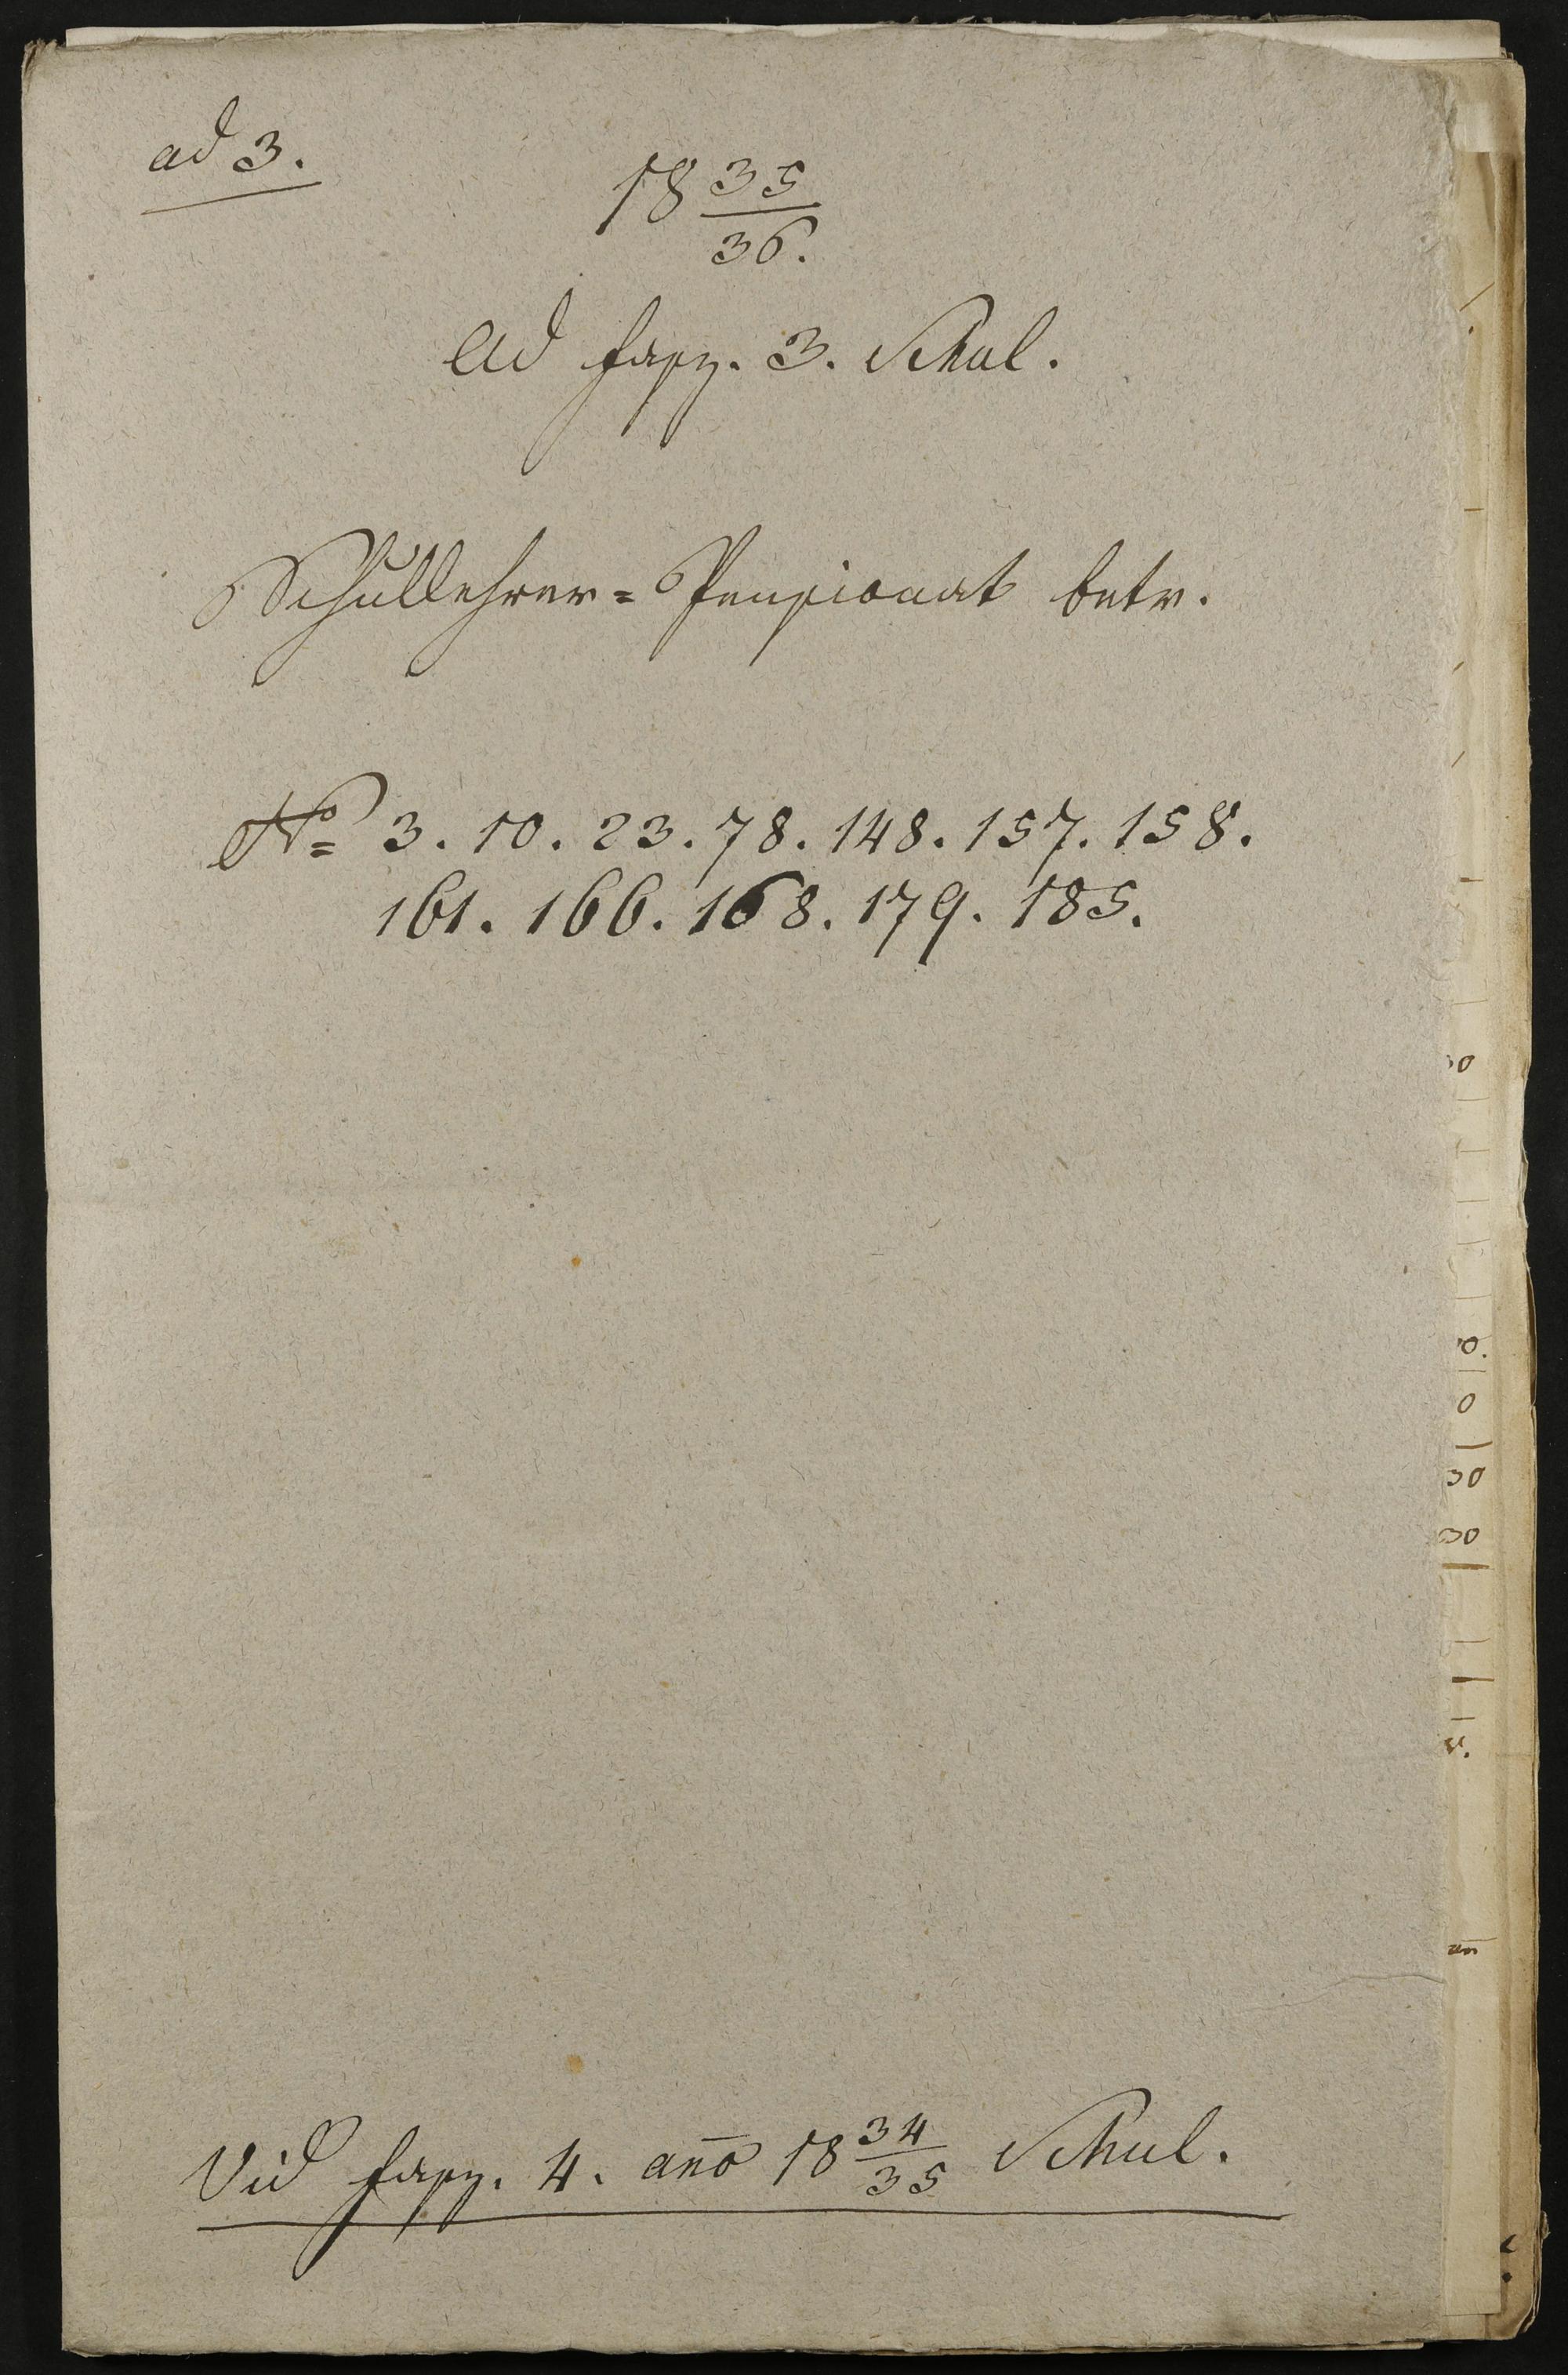 ad 3.
18 35/36.
Ad fasz. 3. Schul.
Schullehrer = Pensionat betr.
No 3. 10. 23. 78. 148. 157. 158.
161. 166. 168. 179. 185.
Vid fasz. 4. año 18 34/35 Schul.